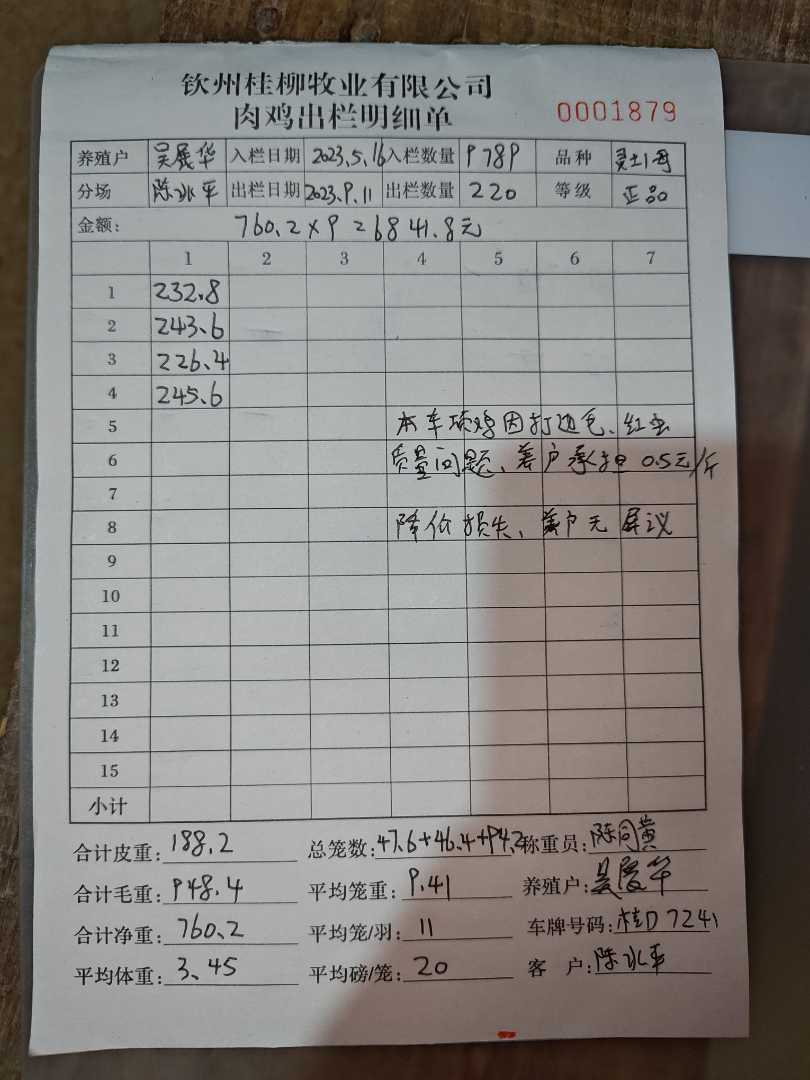 钦州桂柳牧业有限公司
肉鸡出栏明细单 0001879
养殖户 吴展华 入栏日期 2023.5.16 入栏数量 9789 品种 土1号
分场 陈冰平 出栏日期 2023.9.11 出栏数量 220 等级 正品
金额: 760.2×9=6841.8元
1 2 3 4 5 6 7
1 232.8
2 243.6
3 226.4
4 245.6
5 本车项鸡因打边毛、红虫
6 质量问题、养户承担 0.5元/斤
7
8 降价损失、养户无异议
9
10
11
12
13
14
15
小计
合计皮重: 188.2 总笼数: 47.6+46.4+94.2 称重员: 陈同黄
合计毛重: 948.4 平均笼重: 9.41 养殖户: 吴展华
合计净重: 760.2 平均笼/羽: 11 车牌号码: 桂D7241
平均体重: 3.45 平均磅/笼: 20 客户: 陈冰平